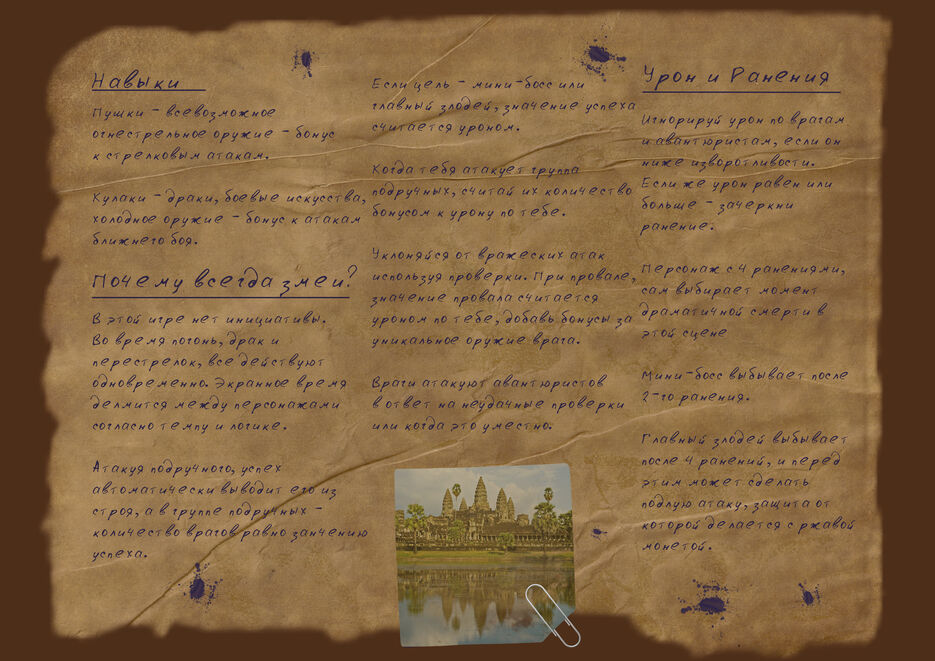 Навыки
Пушки - всевозможное
огнестрельное оружие - бонус
к стрелковым атакам.
Кулаки - драки, боевые искусства,
холодное оружие - бонус к атакам
ближнего боя.
Почему всегда змеи?
В этой игре нет инициативы.
Во время погонь, драк и
перестрелок, все действуют
одновременно. Экранное время
делмится между персонажами
согласно темпу и логике.
Атакуя подручного, успех
автоматически выводит его из
строя, а в группе подручных -
количество врагов равно занчению
успеха.
Если цель - мини-босс или
главный злодей, значение успеха
считается уроном.
Когда тебя атакует группа
подручных, считай их количество
бонусом к урону по тебе.
Уклоняйся от вражеских атак
используя проверки. При провале,
значение провала считается
уроном по тебе, добавь бонусы за
уникальное оружие врага.
Враги атакуют авантюристов
в ответ на неудачные проверки
или когда это уместно.
Урон и Ранения
Игнорируй урон по врагам
и авантюристам, если он
ниже изворотливости.
Если же урон равен или
больше - зачеркни
ранение.
Персонаж с 4 ранениями,
сам выбирает момент
драматичной смерти в
этой сцене
Мини-босс выбывает после
2-го ранения.
Главный злодей выбывает
после 4 ранений, и перед
этим может сделать
подлую атаку, защита от
которой делается с ржавой
монетой.